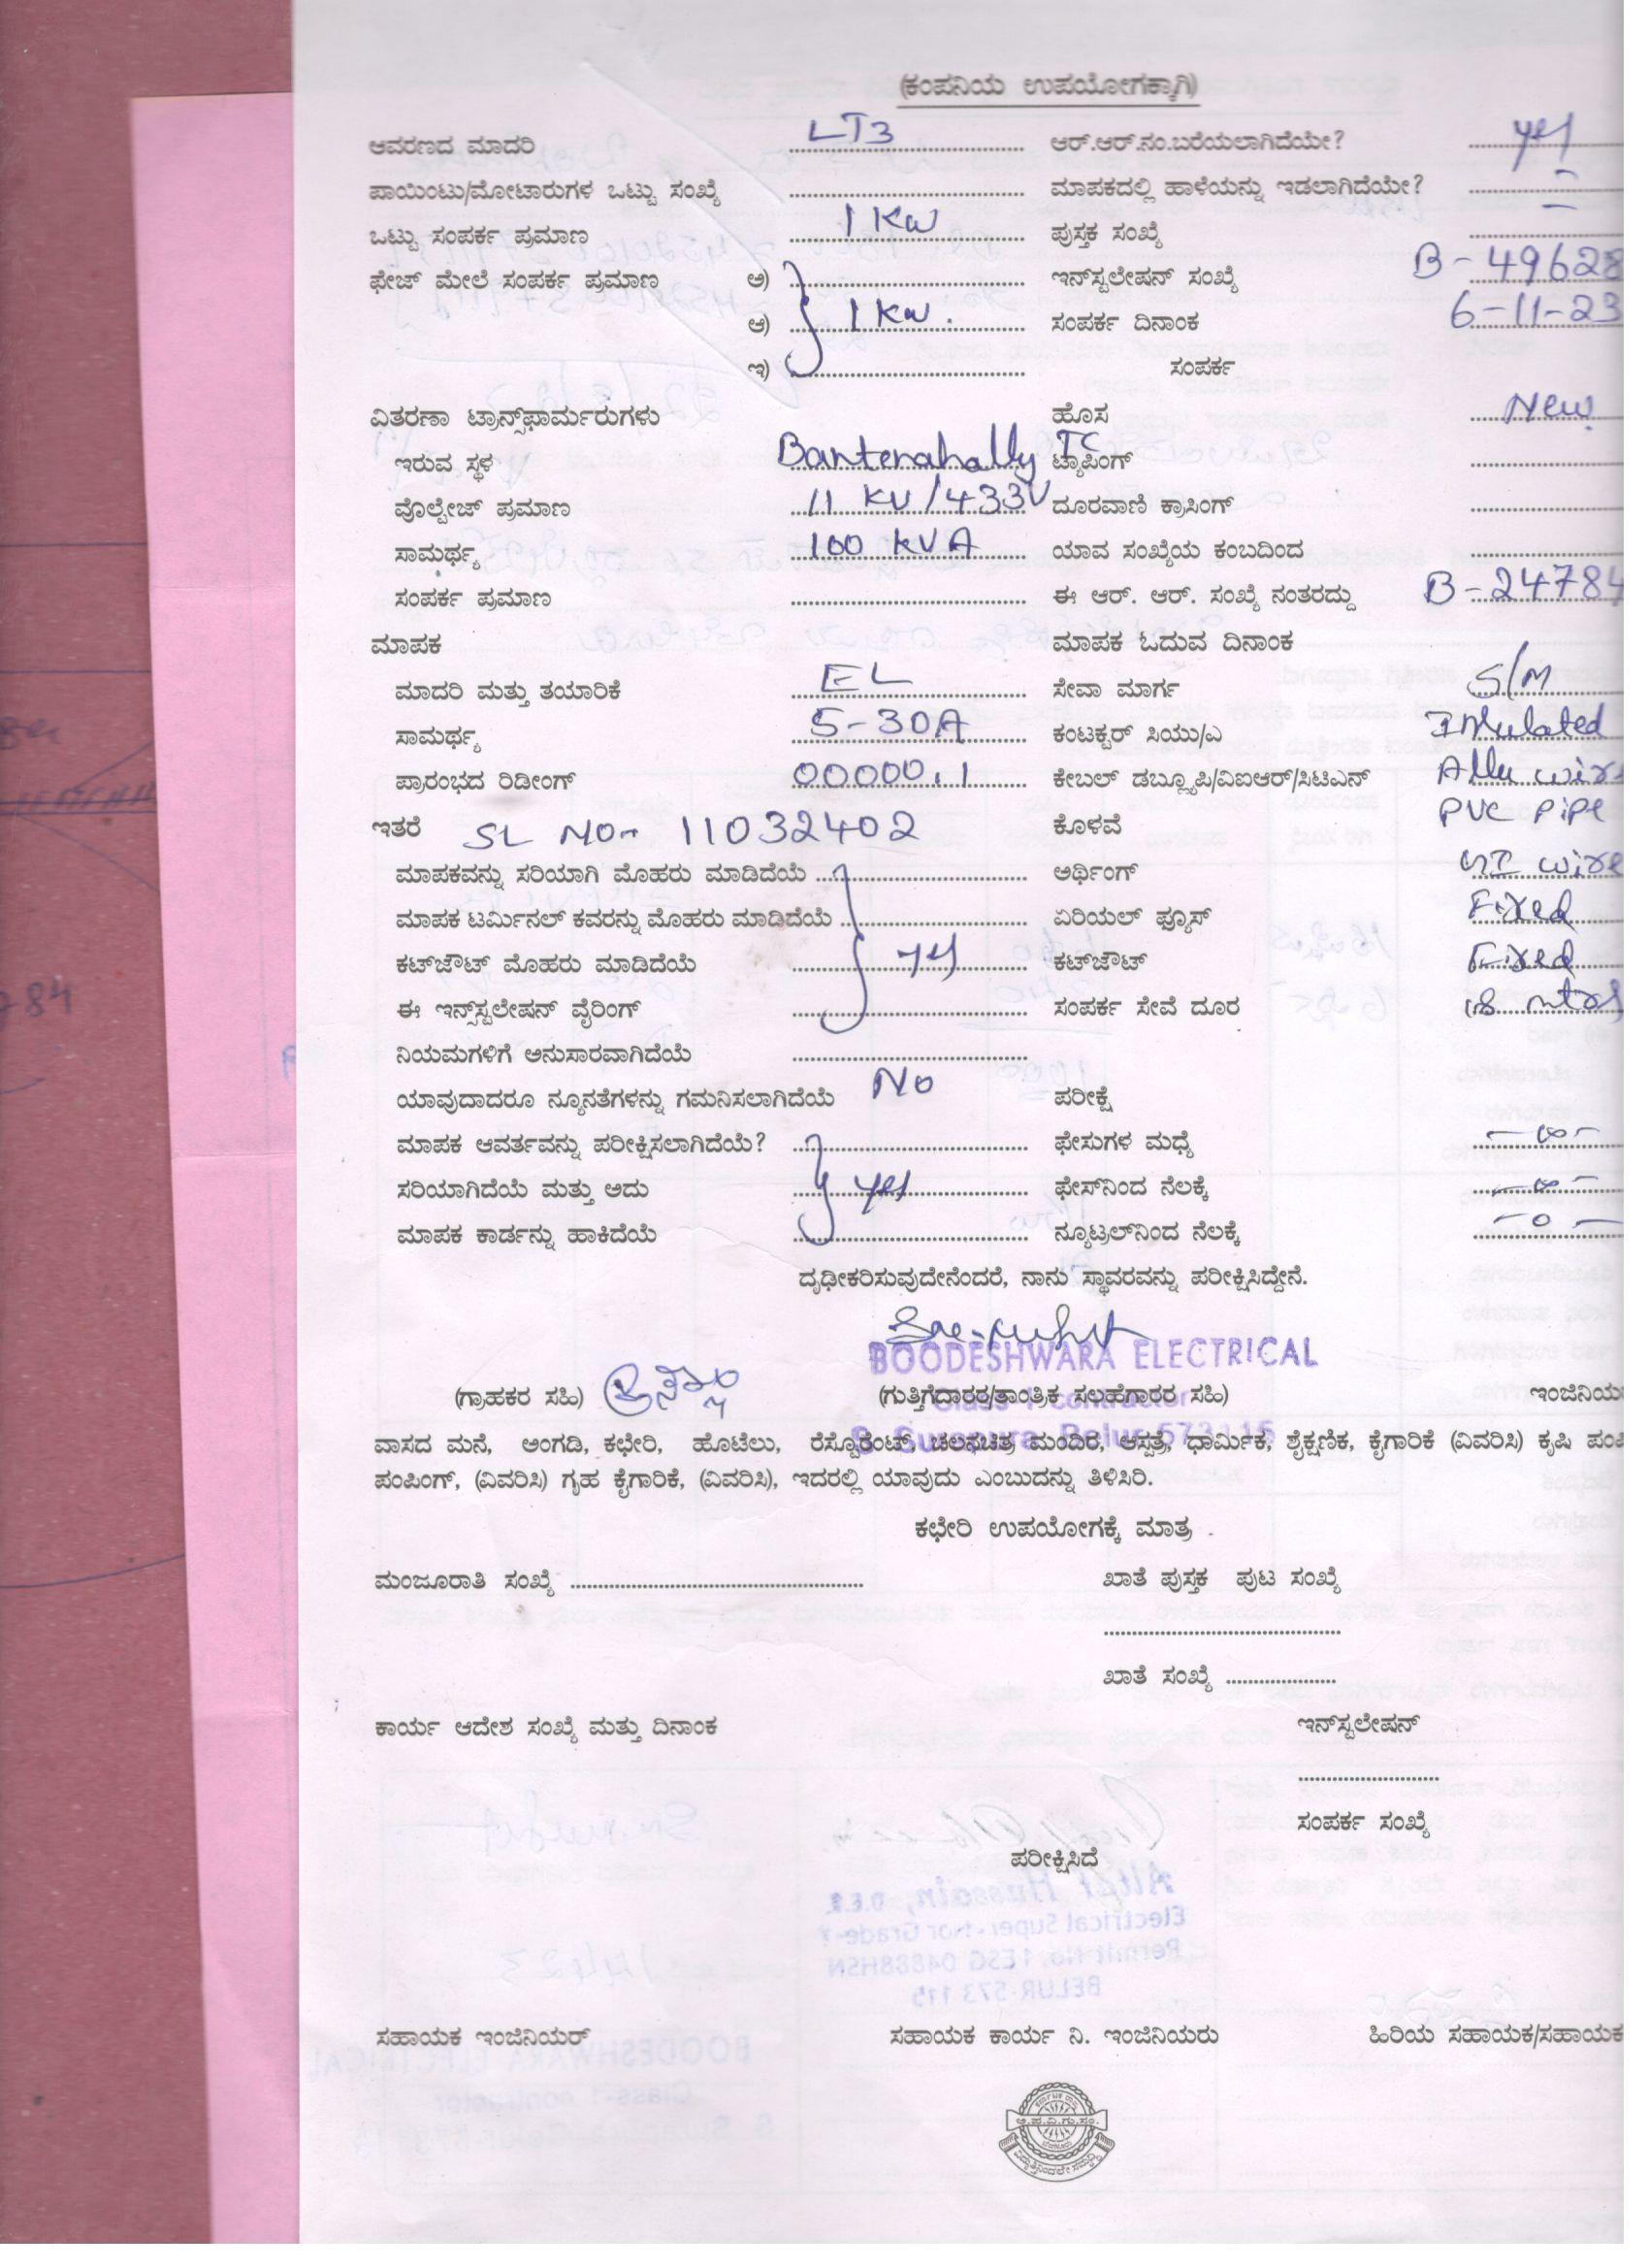 (ಕಂಪನಿಯ ಉಪಯೋಗಕ್ಕಾಗಿ)
ಆವರಣದ ಮಾದರಿ LT3 ಆರ್.ಆರ್.ನಂ.ಬರೆಯಲಾಗಿದೆಯೇ? yes
ಪಾಯಿಂಟು/ಮೋಟಾರುಗಳ ಒಟ್ಟು ಸಂಖ್ಯೆ ಮಾಪಕದಲ್ಲಿ ಹಾಳೆಯನ್ನು ಇಡಲಾಗಿದೆಯೇ? –
ಒಟ್ಟು ಸಂಪರ್ಕ ಪ್ರಮಾಣ 1 Kw ಪುಸ್ತಕ ಸಂಖ್ಯೆ –
ಫೇಜ್ ಮೇಲೆ ಸಂಪರ್ಕ ಪ್ರಮಾಣ ಅ) ಇನ್‌ಸ್ಟಲೇಷನ್ ಸಂಖ್ಯೆ B-49628
ಆ) 1 Kw. ಸಂಪರ್ಕ ದಿನಾಂಕ 6-11-23
ಇ) ಸಂಪರ್ಕ
ವಿತರಣಾ ಟ್ರಾನ್ಸ್‌ಫಾರ್ಮರುಗಳು ಹೊಸ New
ಇರುವ ಸ್ಥಳ Bantenahally TC ಟ್ಯಾಪಿಂಗ್
ವೊಲ್ಟೇಜ್ ಪ್ರಮಾಣ 11 KV/433V ದೂರವಾಣಿ ಕ್ರಾಸಿಂಗ್
ಸಾಮರ್ಥ್ಯ 100 KVA ಯಾವ ಸಂಖ್ಯೆಯ ಕಂಬದಿಂದ
ಸಂಪರ್ಕ ಪ್ರಮಾಣ ಈ ಆರ್. ಆರ್. ಸಂಖ್ಯೆ ನಂತರದ್ದು B-24784
ಮಾಪಕ ಮಾಪಕ ಓದುವ ದಿನಾಂಕ
ಮಾದರಿ ಮತ್ತು ತಯಾರಿಕೆ EL ಸೇವಾ ಮಾರ್ಗ S/M
ಸಾಮರ್ಥ್ಯ 5-30A ಕಂಟಕ್ಟರ್ ಸಿಯು/ಎ Insulated
ಪ್ರಾರಂಭದ ರಿಡೀಂಗ್ 00000.1 ಕೇಬಲ್ ಡಬ್ಲ್ಯೂಪಿ/ವಿಐಆರ್/ಸಿಟಿಎನ್ Allu wire
ಇತರೆ SL NO- 11032402 ಕೊಳವೆ PVC PiPe
ಮಾಪಕವನ್ನು ಸರಿಯಾಗಿ ಮೊಹರು ಮಾಡಿದೆಯೆ ಅರ್ಥಿಂಗ್ GI wire
ಮಾಪಕ ಟರ್ಮಿನಲ್ ಕವರನ್ನು ಮೊಹರು ಮಾಡಿದೆಯೆ ಏರಿಯಲ್ ಫ್ಯೂಸ್ Fixed
ಕಟ್‌ಜೌಟ್ ಮೊಹರು ಮಾಡಿದೆಯೆ yes ಕಟ್‌ಜೌಟ್ Fixed
ಈ ಇನ್ಸ್‌ಸ್ಟಲೇಷನ್ ವೈರಿಂಗ್ ಸಂಪರ್ಕ ಸೇವೆ ದೂರ 18 mtrs
ನಿಯಮಗಳಿಗೆ ಅನುಸಾರವಾಗಿದೆಯೆ
ಯಾವುದಾದರೂ ನ್ಯೂನತೆಗಳನ್ನು ಗಮನಿಸಲಾಗಿದೆಯೆ No ಪರೀಕ್ಷೆ
ಮಾಪಕ ಆವರ್ತವನ್ನು ಪರೀಕ್ಷಿಸಲಾಗಿದೆಯೆ? ಫೇಸುಗಳ ಮಧ್ಯೆ –∞–
ಸರಿಯಾಗಿದೆಯೆ ಮತ್ತು ಅದು yes ಫೇಸ್‌ನಿಂದ ನೆಲಕ್ಕೆ –∞–
ಮಾಪಕ ಕಾರ್ಡನ್ನು ಹಾಕಿದೆಯೆ ನ್ಯೂಟ್ರಲ್‌ನಿಂದ ನೆಲಕ್ಕೆ –0–
ದೃಢೀಕರಿಸುವುದೇನೆಂದರೆ, ನಾನು ಸ್ಥಾವರವನ್ನು ಪರೀಕ್ಷಿಸಿದ್ದೇನೆ.
BOODESHWARA ELECTRICAL
(ಗ್ರಾಹಕರ ಸಹಿ) (ಗುತ್ತಿಗೆದಾರರ/ತಾಂತ್ರಿಕ ಸಲಹೆಗಾರರ ಸಹಿ) ಇಂಜಿನಿಯ
Class-1 contractor
S. Surapura, Belur-573115
ವಾಸದ ಮನೆ, ಅಂಗಡಿ, ಕಛೇರಿ, ಹೊಟೆಲು, ರೆಸ್ಟೊರೆಂಟ್, ಚಲನಚಿತ್ರ ಮಂದಿರ, ಆಸ್ಪತ್ರೆ, ಧಾರ್ಮಿಕ, ಶೈಕ್ಷಣಿಕ, ಕೈಗಾರಿಕೆ (ವಿವರಿಸಿ) ಕೃಷಿ ಪಂಪಿ
ಪಂಪಿಂಗ್, (ವಿವರಿಸಿ) ಗೃಹ ಕೈಗಾರಿಕೆ, (ವಿವರಿಸಿ), ಇದರಲ್ಲಿ ಯಾವುದು ಎಂಬುದನ್ನು ತಿಳಿಸಿರಿ.
ಕಛೇರಿ ಉಪಯೋಗಕ್ಕೆ ಮಾತ್ರ
ಮಂಜೂರಾತಿ ಸಂಖ್ಯೆ ಖಾತೆ ಪುಸ್ತಕ ಪುಟ ಸಂಖ್ಯೆ
ಖಾತೆ ಸಂಖ್ಯೆ
ಕಾರ್ಯ ಆದೇಶ ಸಂಖ್ಯೆ ಮತ್ತು ದಿನಾಂಕ ಇನ್‌ಸ್ಟಲೇಷನ್
ಸಂಪರ್ಕ ಸಂಖ್ಯೆ
ಪರೀಕ್ಷಿಸಿದೆ
ಸಹಾಯಕ ಇಂಜಿನಿಯರ್ ಸಹಾಯಕ ಕಾರ್ಯ ನಿ. ಇಂಜಿನಿಯರು ಹಿರಿಯ ಸಹಾಯಕ/ಸಹಾಯಕ